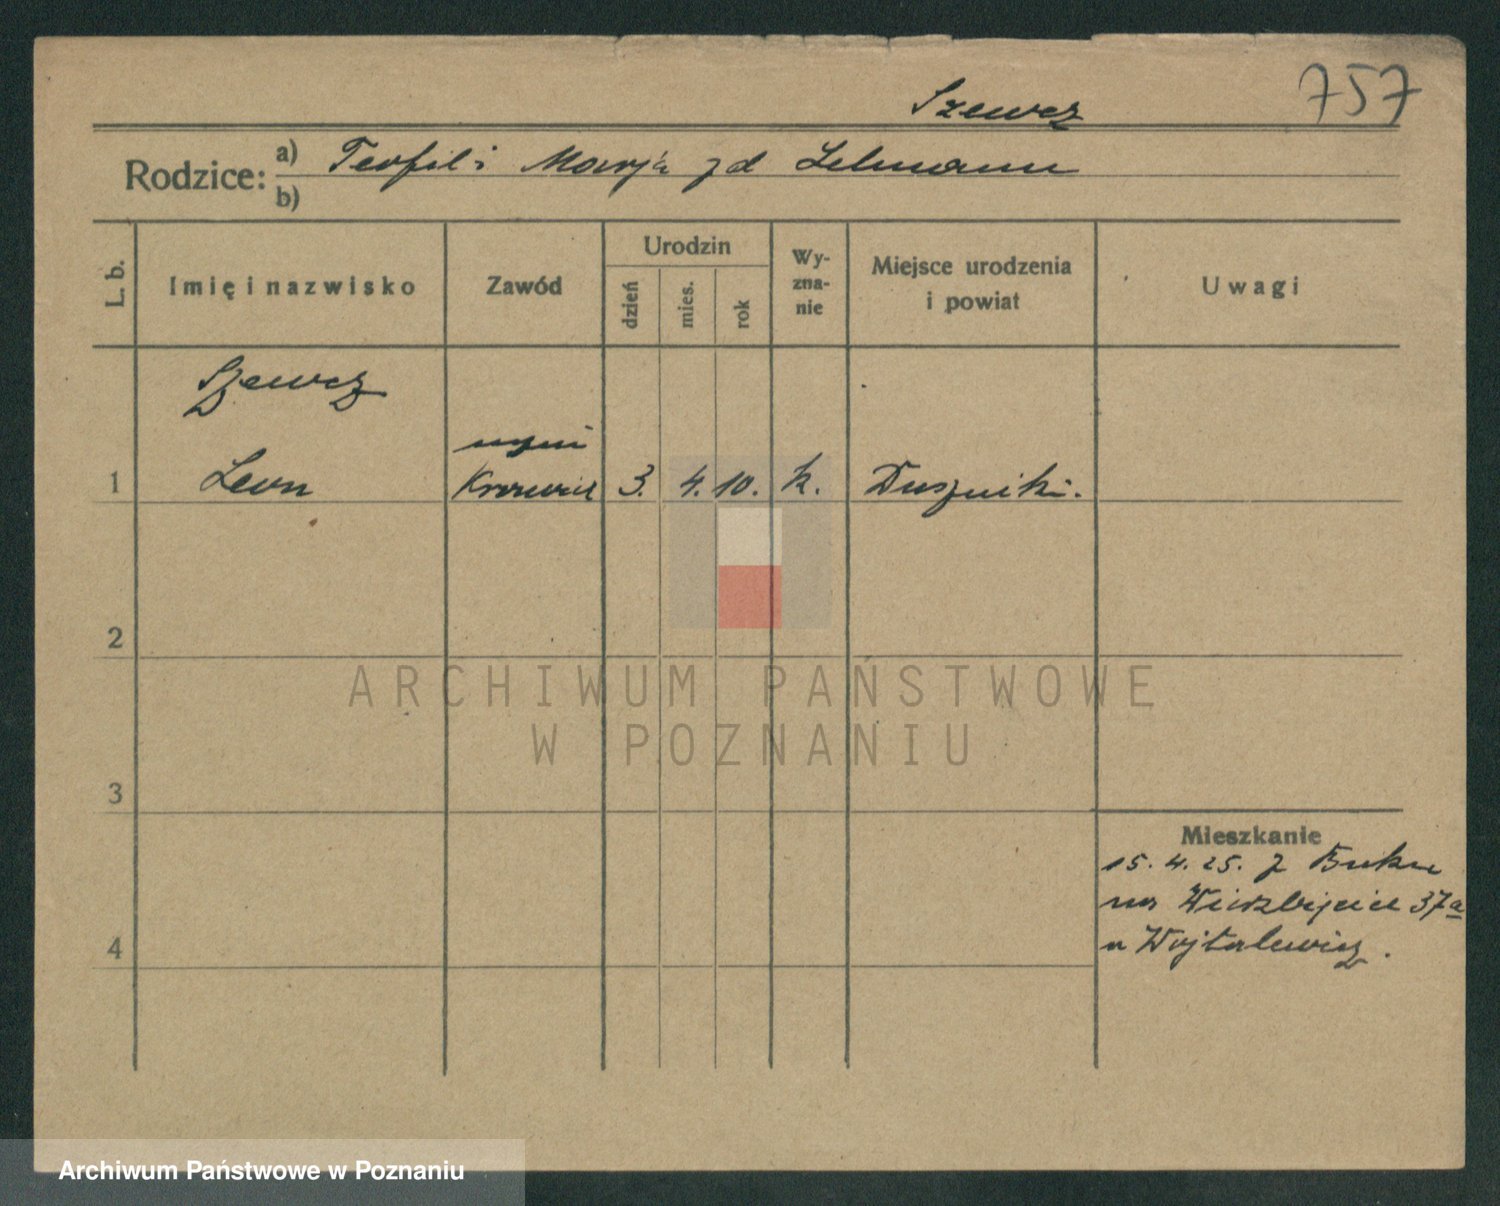 757
Szewcz
Rodzice: a) Teofil i Marja zd Lehmann
b)
L. b.
Imię i nazwisko
Zawód
Urodzin
dzień
mies.
rok
Wy-
zna-
nie
Miejsce urodzenia
i powiat
Uwagi
Szewcz
1 Leon 3. 4. 10. k. Duszniki.
2
3
4
Mieszkanie
15. 4. 25. z Buku
na Wierzbięcice 37a
u Wojtalewicz.
ARCHIWUM PAŃSTWOWE
W POZNANIU
Archiwum Państwowe w Poznaniu